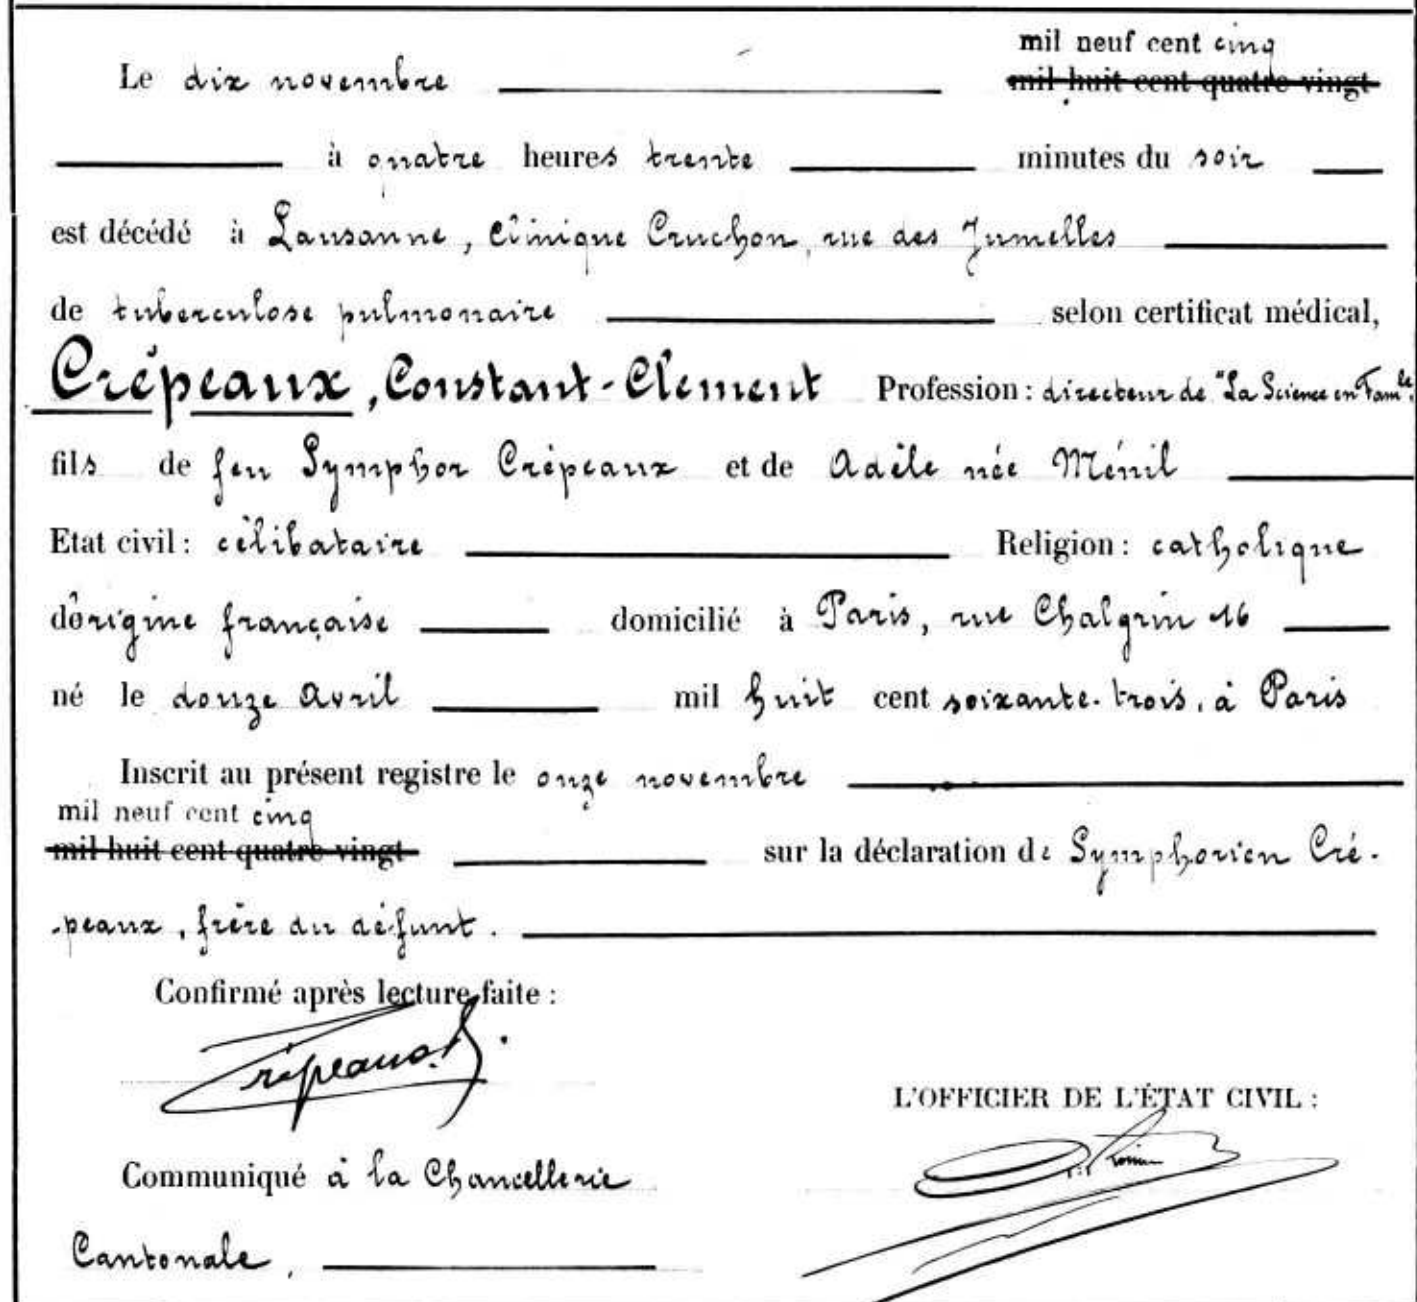 mil neuf cent cinq
Le dix novembre mil huit cent quatre vingt
à quatre heures trente minutes du soir
est décédé à Lausanne, Clinique Cruchon, rue des Jumelles
de tuberculose pulmonaire selon certificat médical,
Crépeaux, Constant-Clément Profession : directeur de "La Science en Famle"
fils de feu Symphor Crépeaux et de Adèle née Ménil
Etat civil : célibataire Religion : catholique
d'origine française domicilié à Paris, rue Chalgrin 16
né le douze Avril mil huit cent soixante-trois, à Paris
Inscrit au présent registre le onze novembre
mil neuf cent cinq
mil huit cent quatre vingt sur la déclaration de Symphorien Cré-
-peaux, frère du défunt.
Confirmé après lecture faite :
Crépeaux
L'OFFICIER DE L'ÉTAT CIVIL :
Communiqué à la Chancellerie
Cantonale,